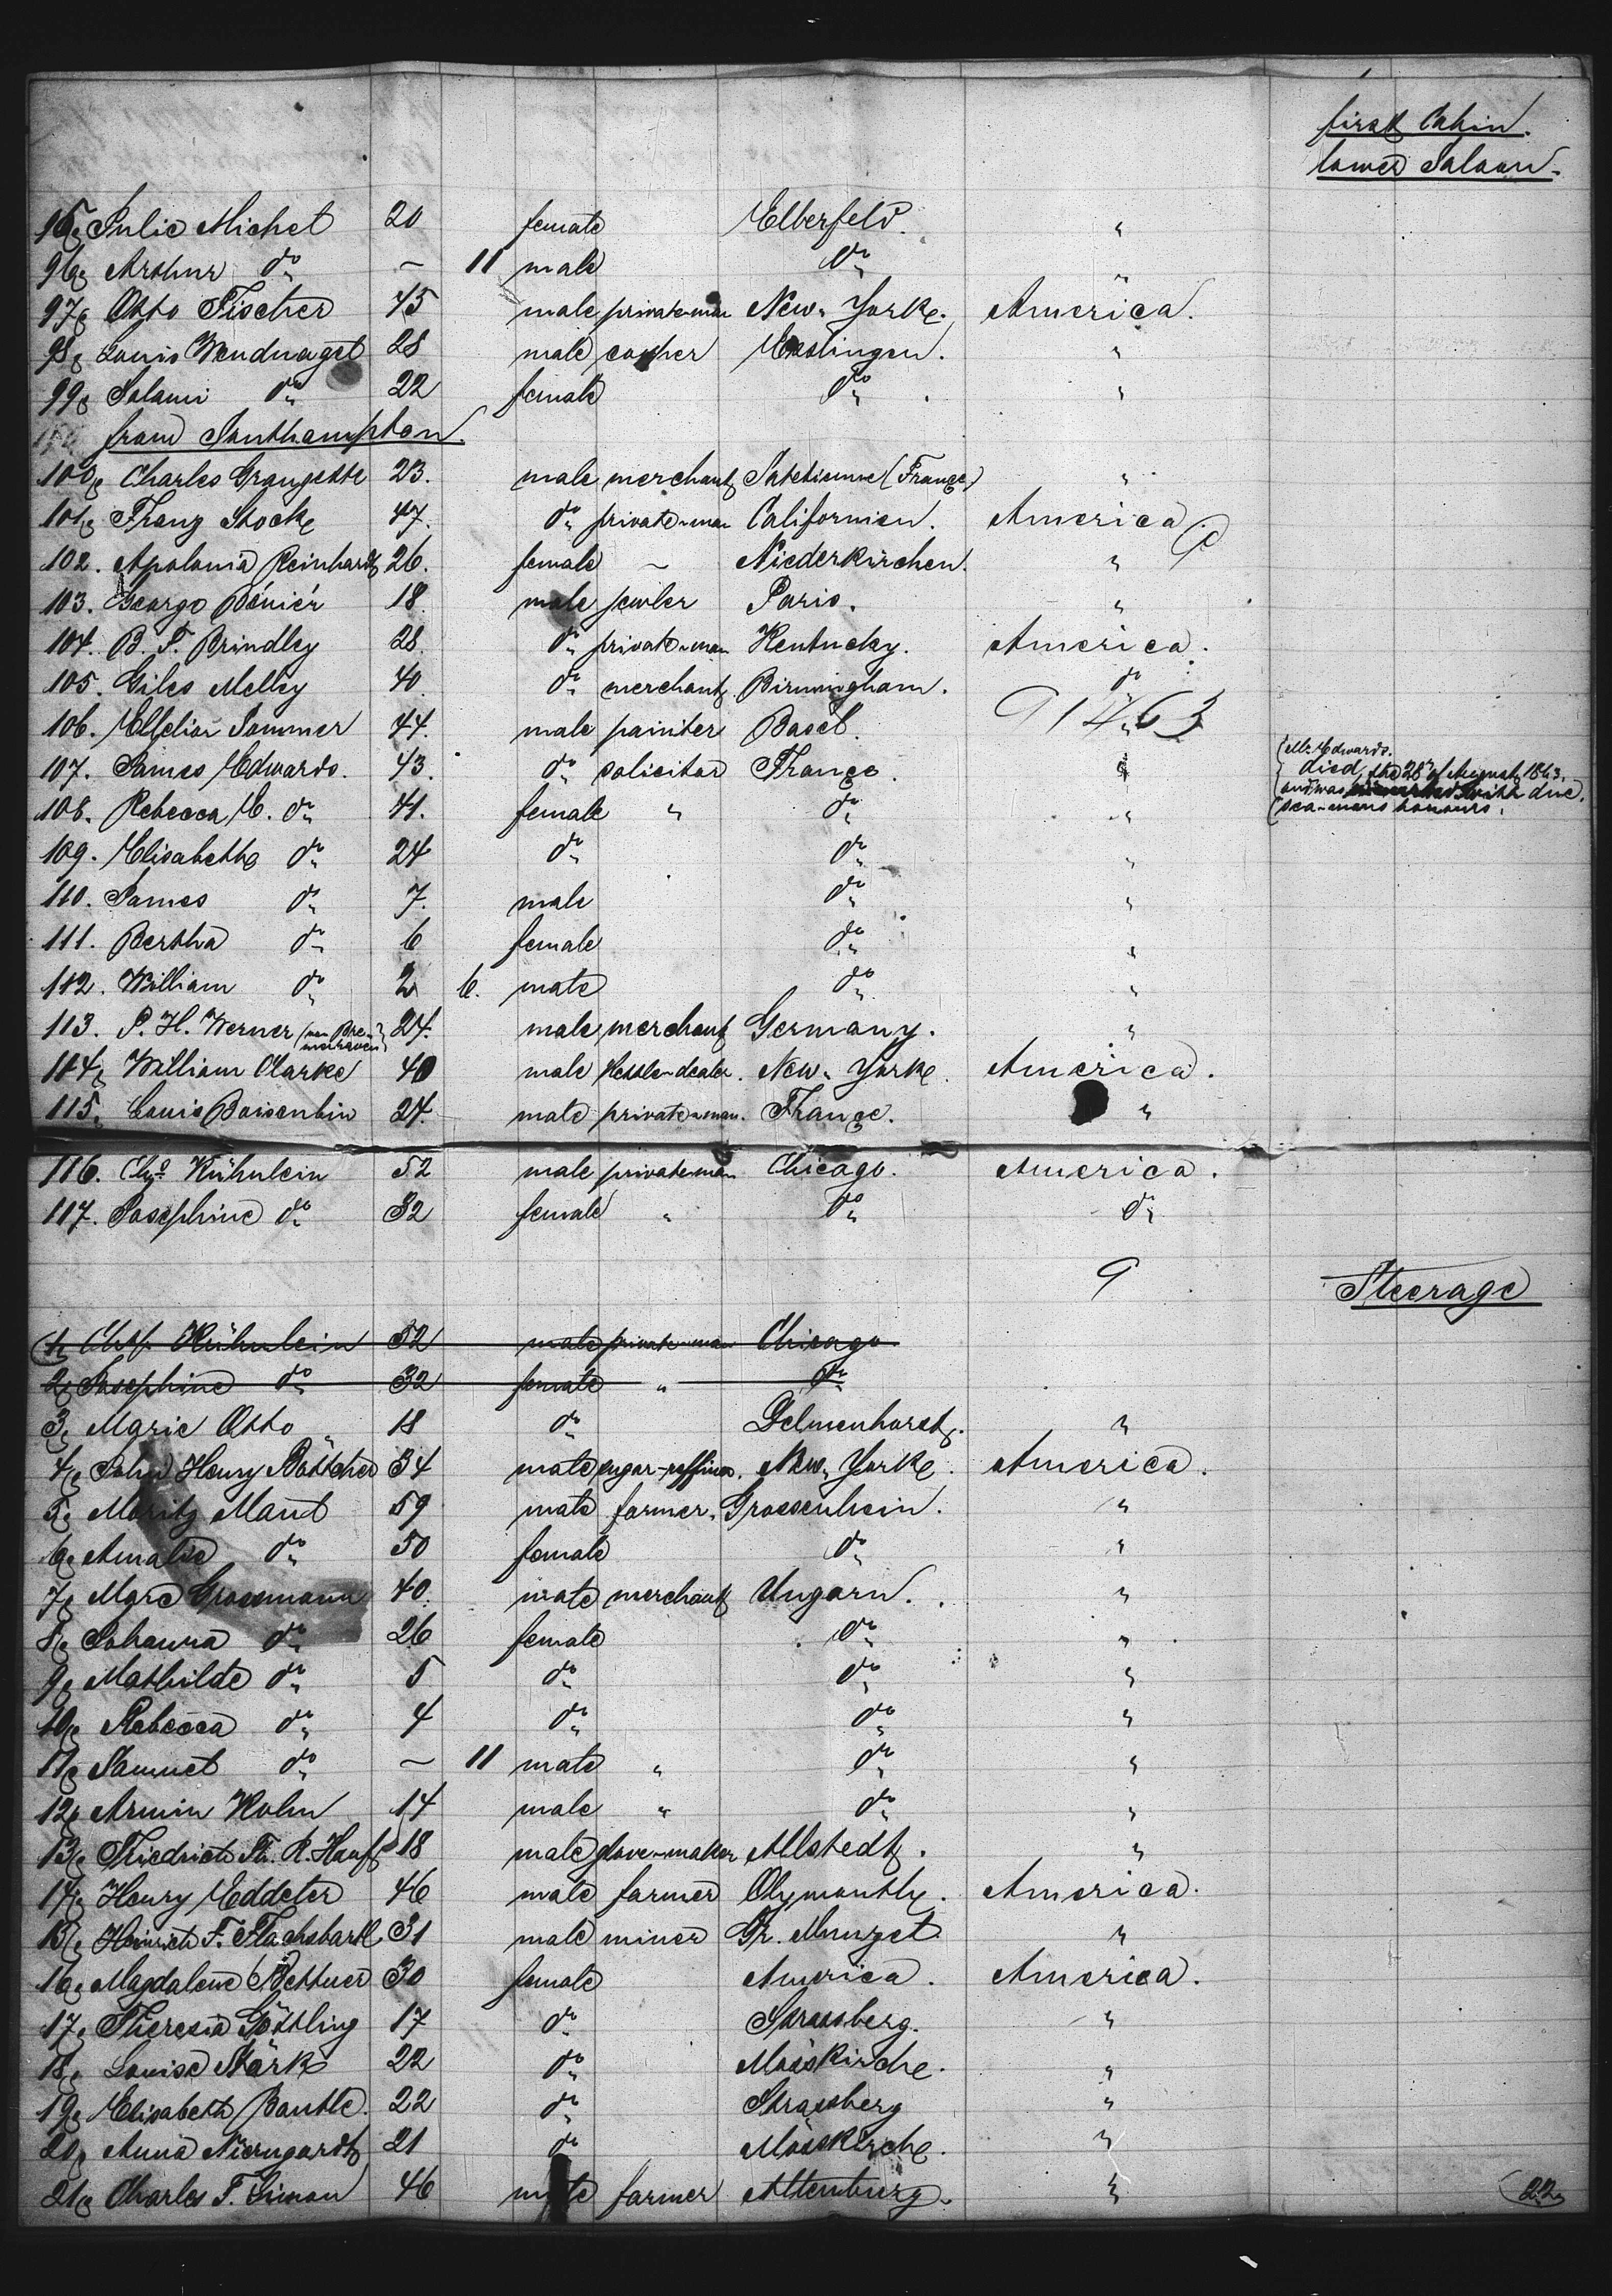 first Cabin.
lower Saloon.
Julie Michel 20 female Elberfeld. "
96, Arthur do – 11 male do "
97, Otto Fischer 45 male private-man New-York. America.
98, Louis Wendnagel 28 male cooper Esslingen. "
99, Salami do 22 female do "
from Southampton.
100, Charles Grangette 23. male merchant (France) "
101, Franz Stock 47. do private-man Californien. America
102. Apolonia Reinhardt 26. female – Niederkirchen. "
103. George 18. male jewler Paris. "
104. B. F. Brindley 28. do private-man Kentucky. America.
105. Giles Melley 40. do merchant Birmingham. do
106. Sommer 44. male painter Basel. "
107. James Edwards. 43. do solicitor France. " Mr. Edwards.
died, the 28th of August, 1863,
and was with due
sea-mans honours.
108. Rebecca E. do 41. female " do "
109. Elisabeth do 24 do do "
110. James do 7. male do "
111. Bertha do 6 female do "
112. William do 2 6. male do "
113. P. H. Werner 24. male merchant Germany. "
114, William Clarke 40 male New-York. America.
115. Louis 24. male private-man. France. "
116. Kühnlein 52 male private-man Chicago. America.
117. Josephine do 32 female " do do
9
Steerage
1, Kühnlein 52 male private-man Chicago
2, Josephine do 32 female " do
3, Marie Otto 18 do Delmenhorst. "
4, John Henry Böttcher 34 male sugar-raffiner. New-York. America.
5, Moritz Mant 59 male farmer. Grossenhein. "
6, Amalie do 50 female do "
7, Grossmann 40. male merchant Ungarn. "
8, Johanna do 26 female do "
9, Mathilde do 5 do do "
10, Rebecca do 4 do do "
11, Samuel do – 11 male " do "
12, Armin Kohn 14 male " do "
13, Friedrich Th. R. Hauf 18 male glove-maker Allstedt. "
14, Henry Eddeler 46 male farmer America.
15, Heinrich F. Flachsbartl 31 male miner Gr. Munzel "
16, Magdalene Bettner 30 female America. America.
17, Theresia Göttling 17 do Strassberg. "
18, Louise Stärk 22 do Mösskirche. "
19, Elisabeth Bantle. 22 do Strassberg "
20, Anna Nierngardt 21 do Mösskirche. "
21, Charles F. Simon 46 male farmer Altenburg. "
22